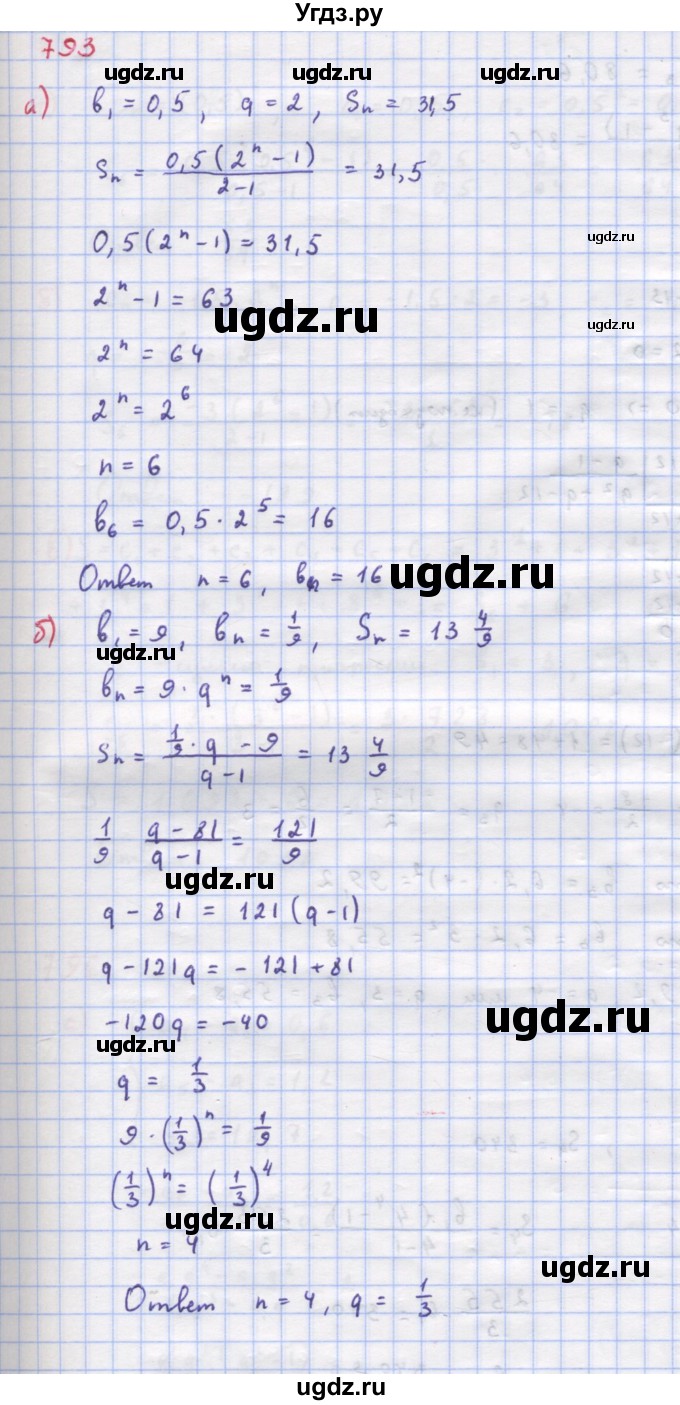 Угдз.ру
793
ugdz.ru ugdz.ru
а) b₁ = 0,5, q = 2, Sₙ = 31,5
Sₙ = 0,5(2ⁿ - 1) / 2-1 = 31,5
0,5(2ⁿ - 1) = 31,5
ugdz.ru
2ⁿ - 1 = 63
ugdz.ru
ugdz.ru
2ⁿ = 64
2ⁿ = 2⁶
n = 6
b₆ = 0,5 · 2⁵ = 16
Ответ n = 6, bₙ = 16
ugdz.ru
б) b₁ = 9, bₙ = 1/9, Sₙ = 13 4/9
ugdz.ru
bₙ = 9 · qⁿ = 1/9
Sₙ = 1/9 · q - 9 / q - 1 = 13 4/9
1/9 q - 81 / q - 1 = 121/9
ugdz.ru
q - 81 = 121(q - 1)
q - 121q = - 121 + 81
-120q = -40
ugdz.ru
ugdz.ru
q = 1/3
9 · (1/3)ⁿ = 1/9
(1/3)ⁿ = (1/3)⁴
ugdz.ru
n = 4
ugdz.ru
Ответ n = 4, q = 1/3
ugdz.ru